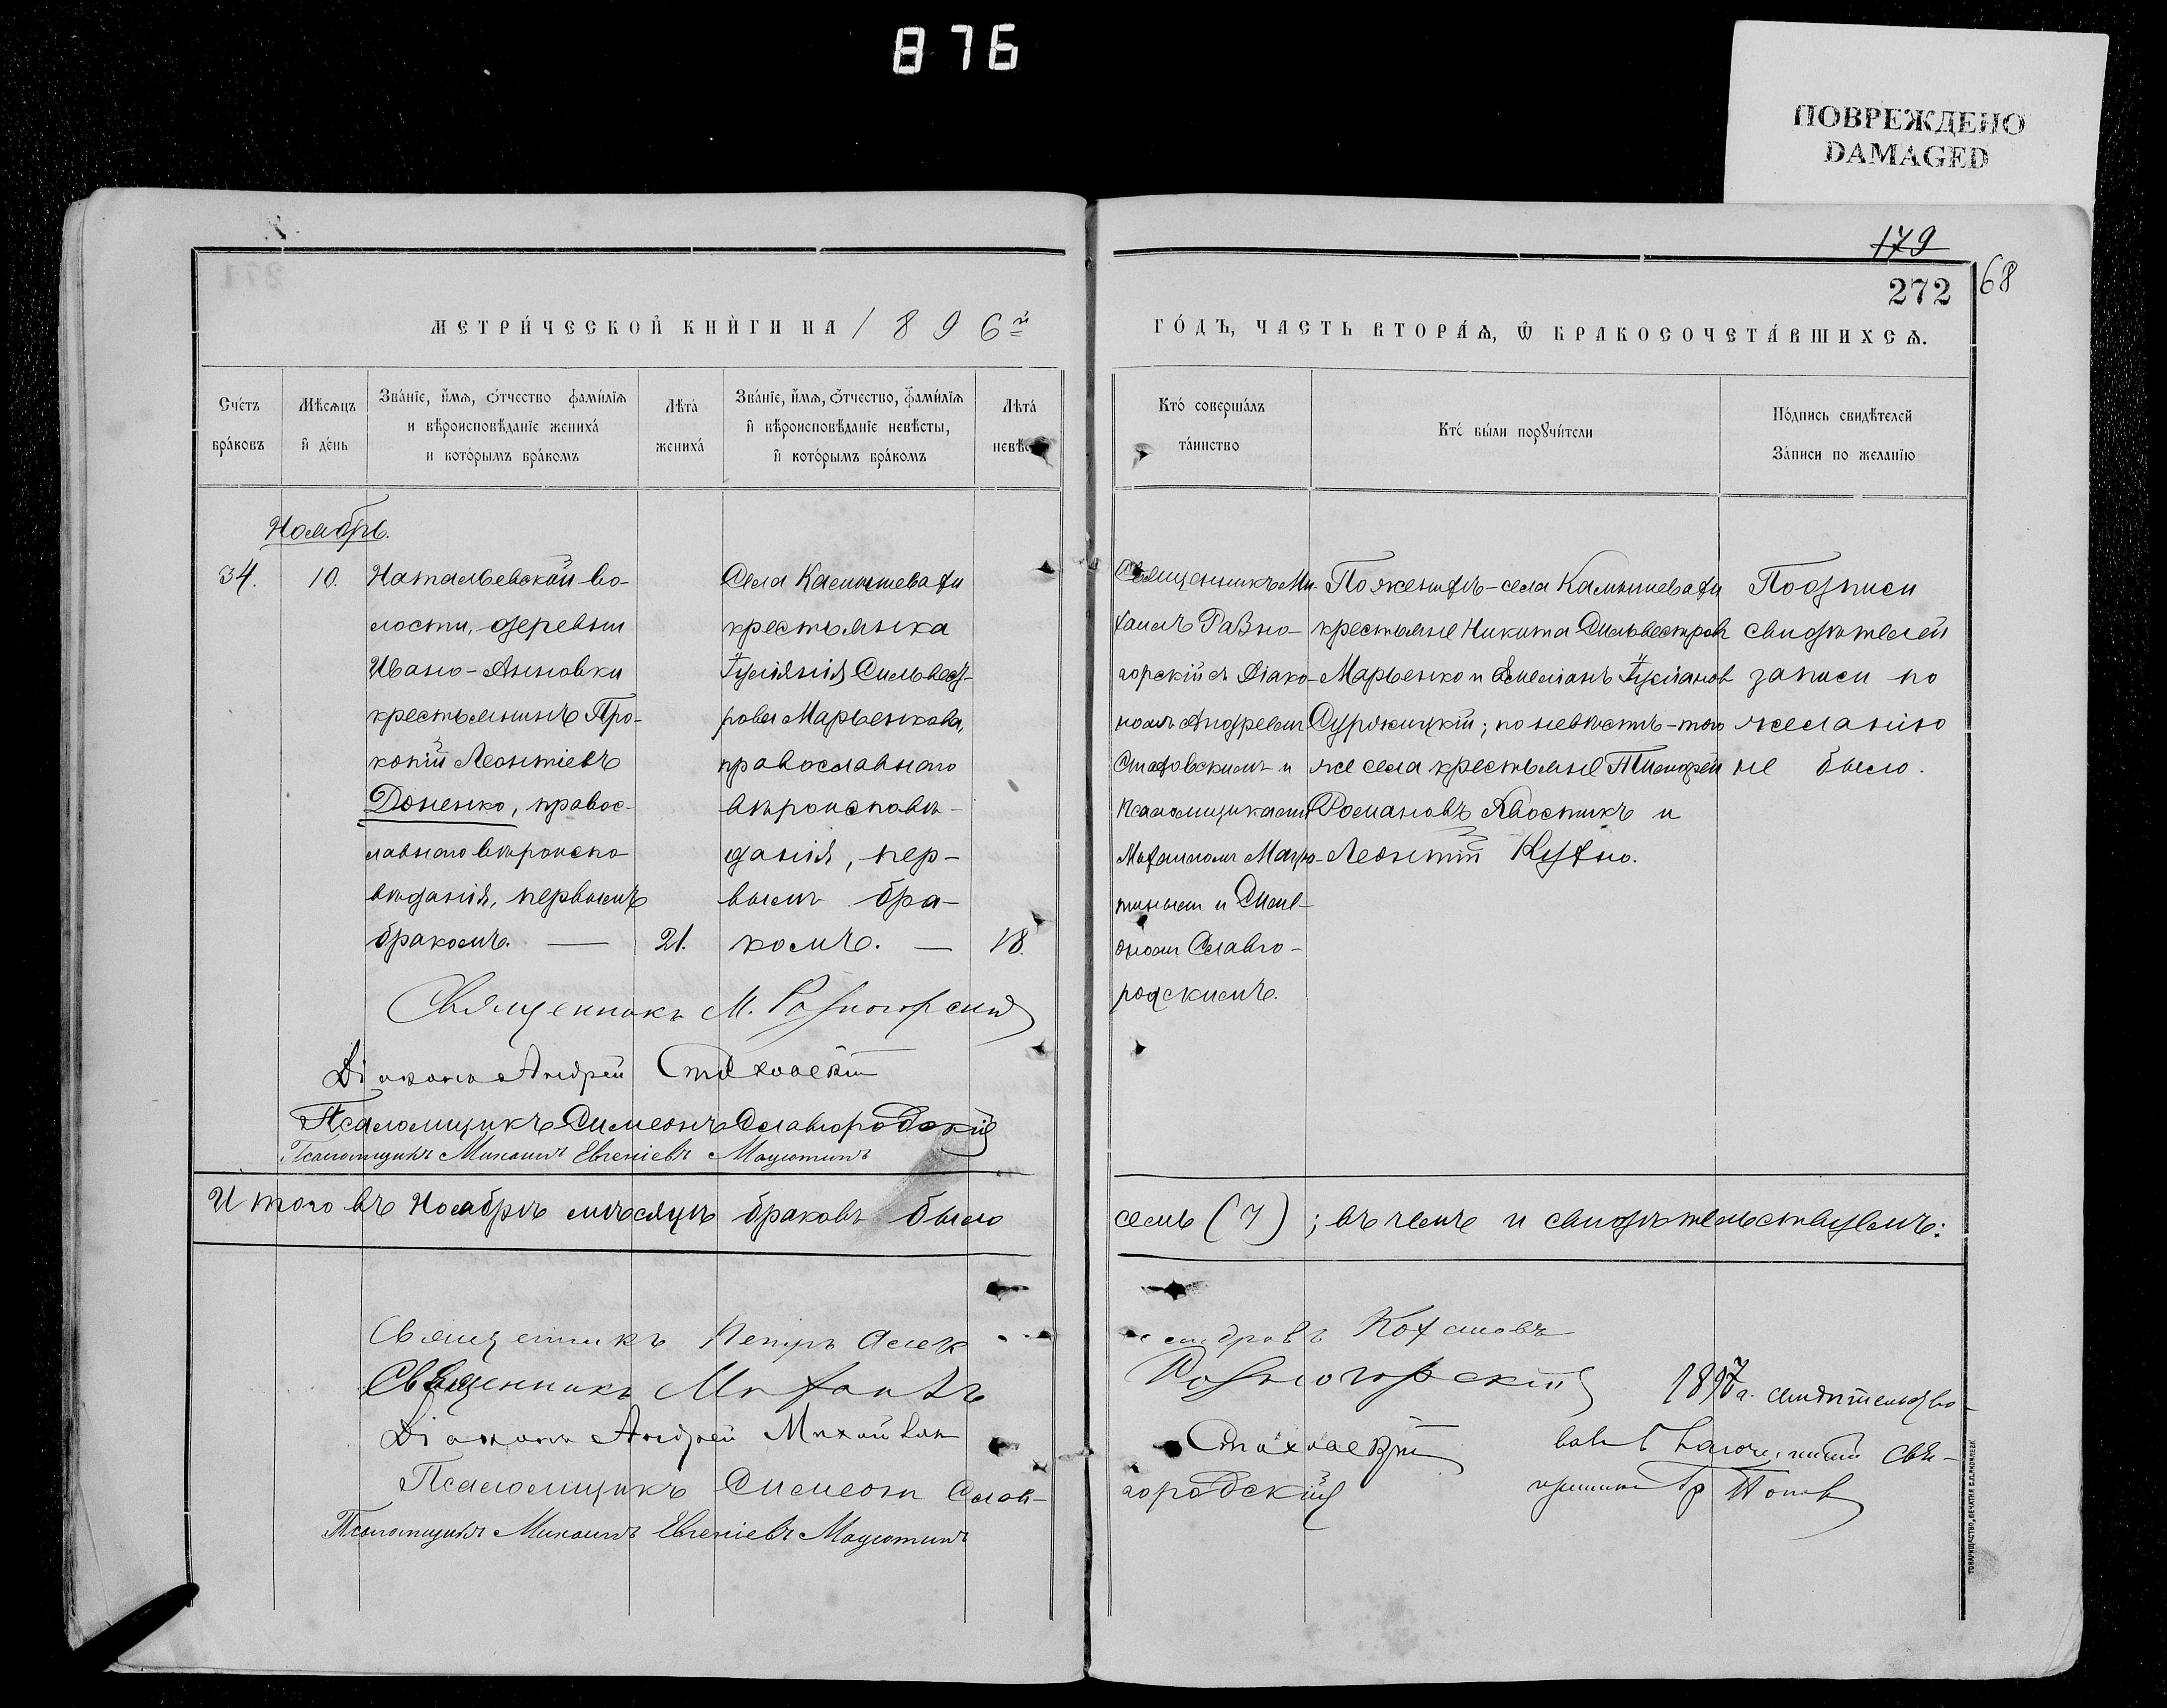 876
ПОВРЕЖДЕНО
DAMAGED
179
272
68
МЕТРИ́ЧЕСКОЙ КНИ́ГИ НА 1896й
ГО́ДЪ, ЧАСТЬ ВТОРА́Ѧ, Ѡ҆ БРАКОСОЧЕТА́ВШИХСѦ.
Сче́тъ
бра́ковъ
Мѣ́сѧцъ
и҆ де́нь
Зва́нїе, и҆́мѧ, о҆́тчество фами́лїѧ
и вѣроисповѣ́данїе жениха́
и кото́рымъ бра́комъ
Лѣта́
жениха́
Зва́нїе, и҆́мѧ, ѻ҆́тчество, фами́лїѧ
и҆ вѣроисповѣ́данїе невѣ́сты,
и҆ кото́рымъ бра́комъ
Лѣта́
невѣ́с
Кто́ соверша́лъ
та́инство
Кто́ бы́ли порꙋчи́тели
По́дпись свидѣ́телей
За́писи по жела́нїю
Ноябрь.
34.
10.
Натальевской во-
лости, деревни
Ивано-Анновки
крестьянинъ Про-
копій Леонтіевъ
Доненко, правос-
лавнаго вѣроиспо-
вѣданія, первымъ
бракомъ. —
21.
Села Камышевахи
крестьянка
Іуліанія Сильвест-
рова Марьенкова,
православнаго
вѣроисповѣ-
данія, пер-
вымъ бра-
комъ. —
18.
Священникъ Ми-
хаилъ Разно-
горскій съ Діако-
номъ Андреемъ
Стаховскимъ и
Псаломщиками
Михаиломъ Мацю-
тинымъ и Симе-
ономъ Славго-
родскимъ.
По женихѣ - села Камышевахи
крестьяне Никита Сильвестровъ
Марьенко и Емеліанъ Іуліановъ
Сурожицкій; по невѣстѣ - того
же села крестьяне Тимофей
Романовъ Хвостикъ и
Леонтій Кухно.
Подписи
свидѣтелей
записи по
желанію
не было.
Священникъ М. Разногорскій
Діаконъ Андрей Стаховскій
Псаломщикъ Симеонъ Славгородскій
Псаломщикъ Михаилъ Евгеніевъ Мацютинъ
Итого въ Ноябрѣ мѣсяцѣ браковъ было
семь (7); въ чемъ и свидѣтельствуемъ:
Священникъ Петръ Алек
сандровъ Кохановъ
Священникъ Михаилъ
Разногорскій
Діаконъ Андрей Михайлов
Стаховскій
Псаломщикъ Симеонъ Слав-
городскій
Псаломщикъ Михаилъ Евгеніевъ Мацютинъ
1897 г. свидѣтельство-
валъ Благочинный Свя-
щенникъ Гр Попов
ТОВАРИЩЕСТВО „ПЕЧАТНЯ С.П.ЯКОВЛЕВА"